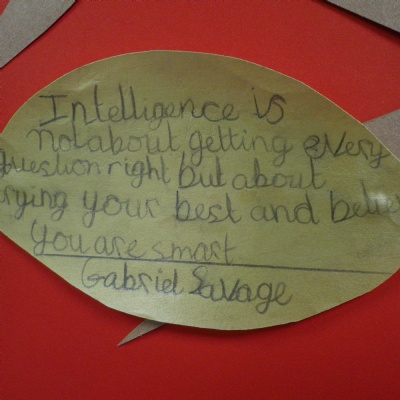 Intelligence is
not about getting every
question right but about
trying your best and
you are smart
Gabriel Savage